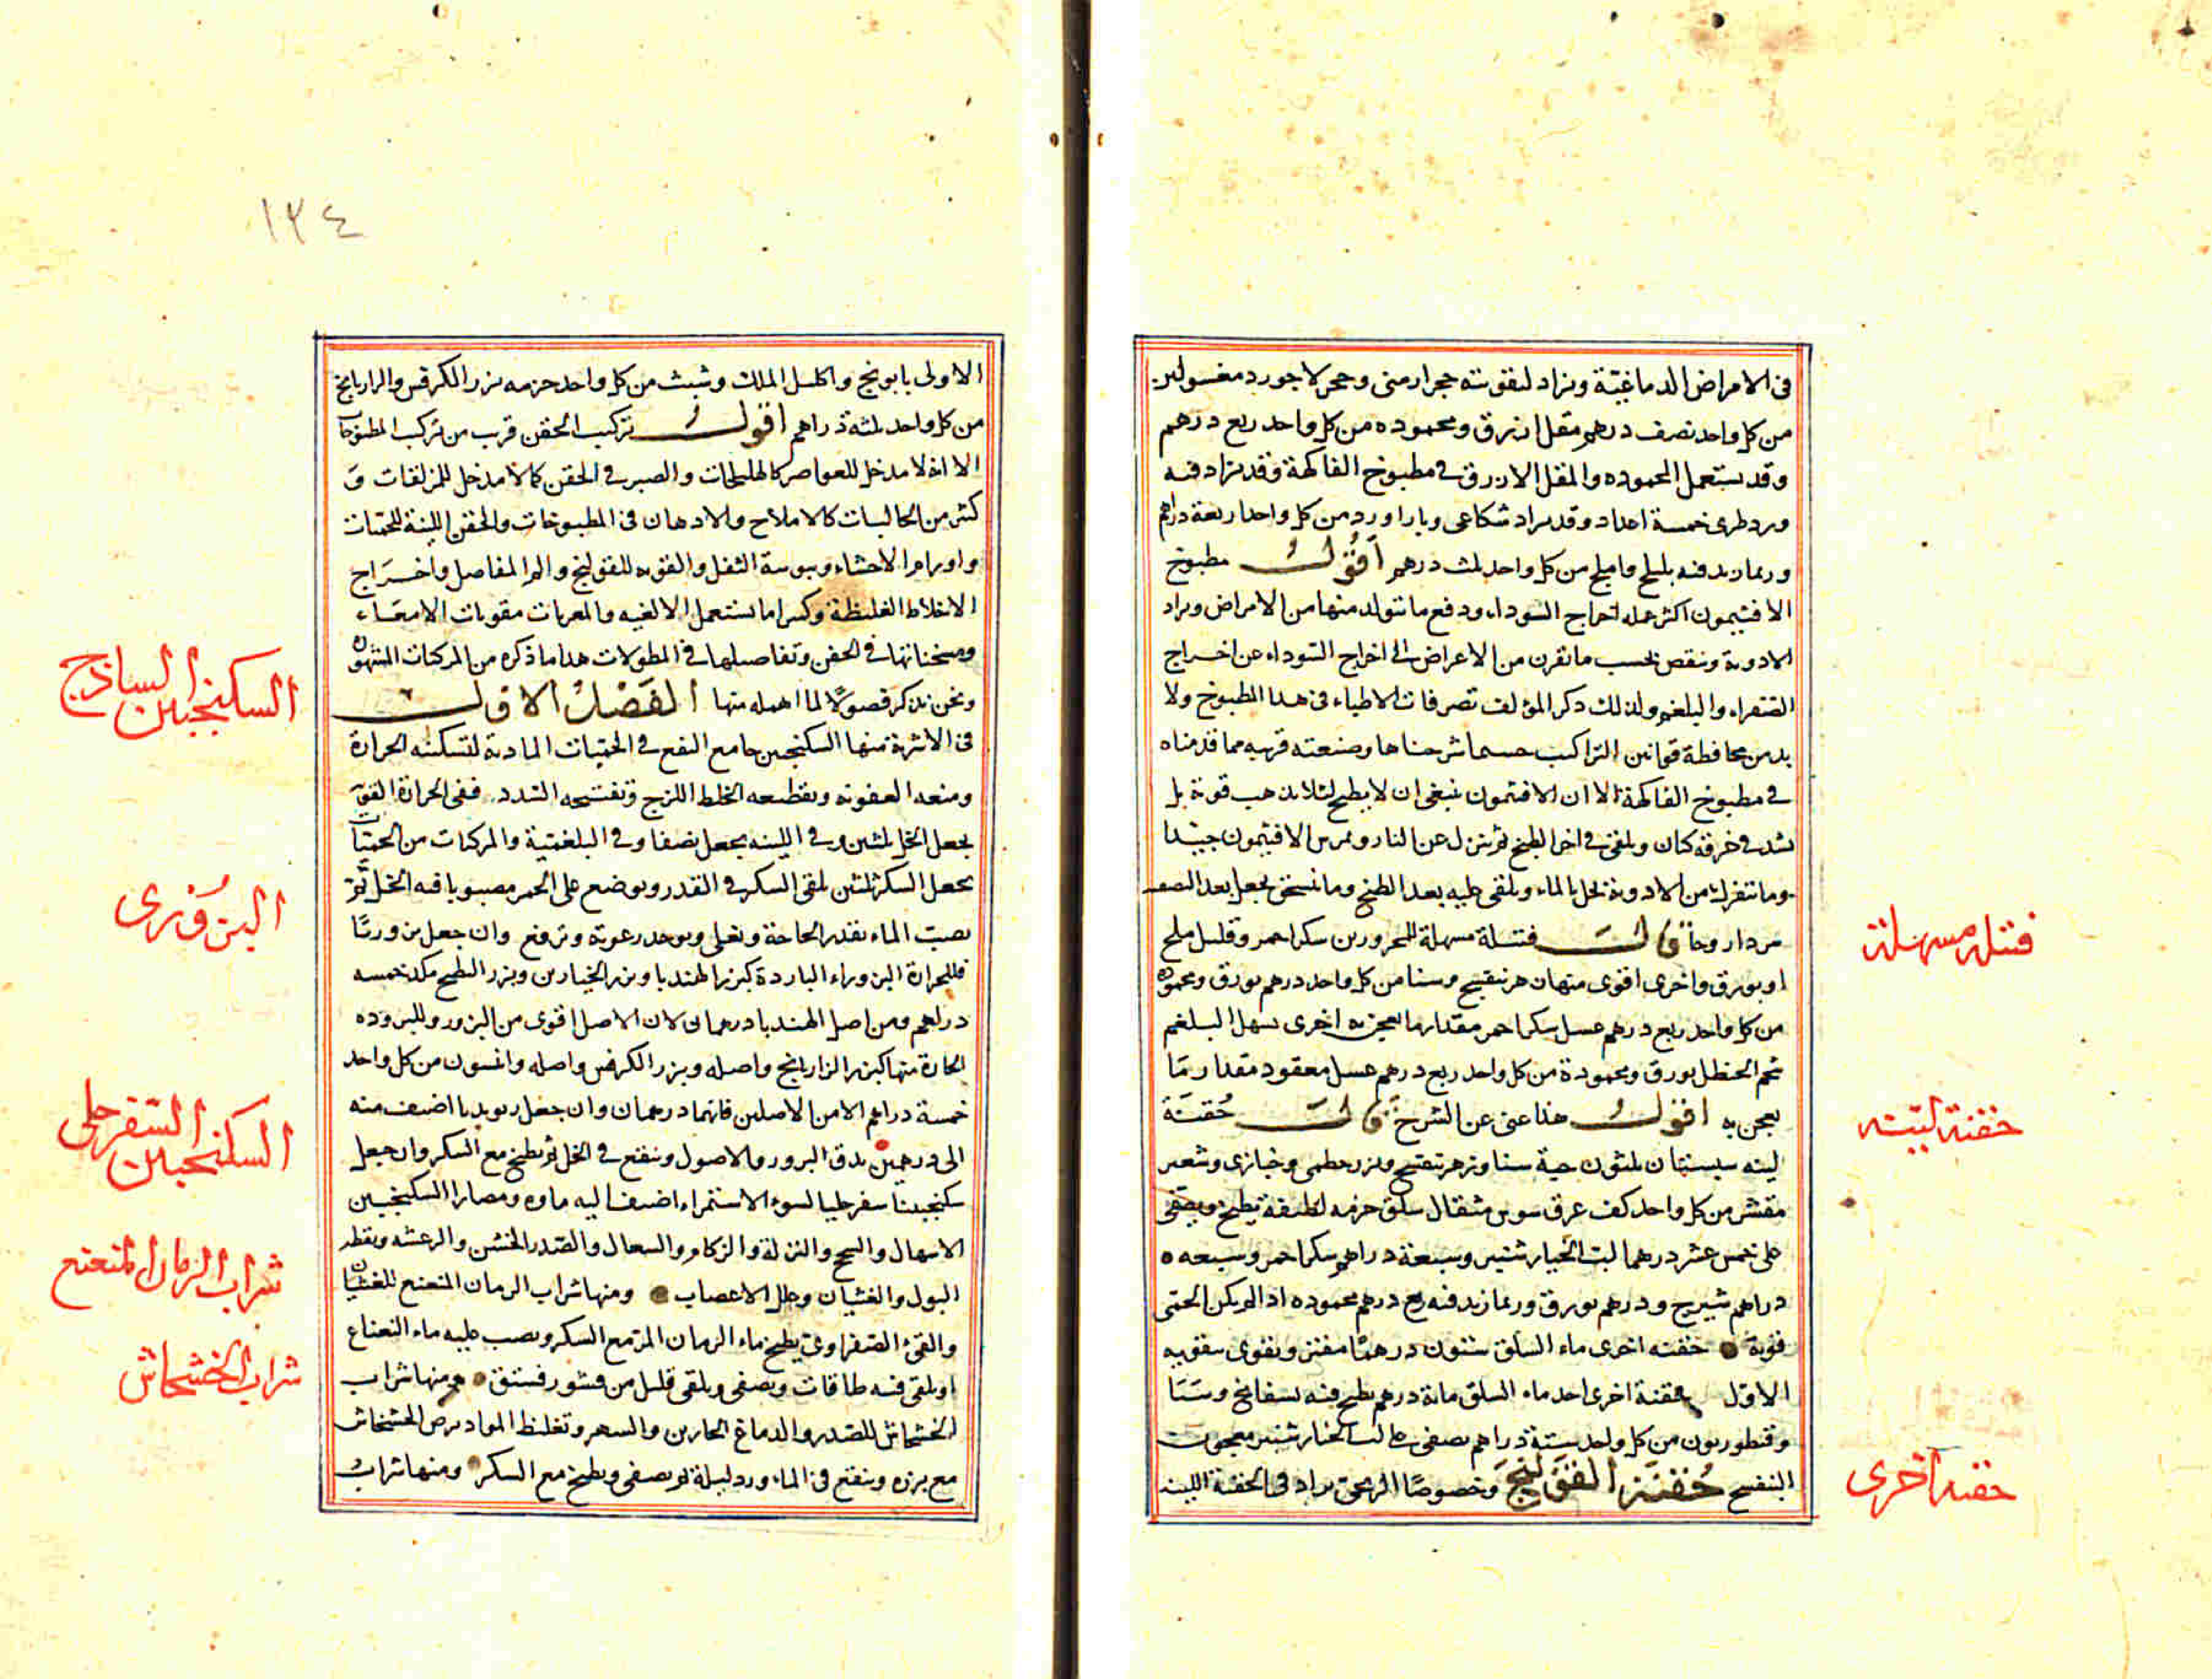 فى الامراض الدماغيّة ويزاد لتقويته حجر ارمنى وحجر لاجورد مغسولين
من كل واحد نصف درهم مقل ازرق ومحموده من كل واحد ربع درهم
وقد يستعمل المحموده والمقل الازرق فى مطبوخ الفاكهة وقد يزاد فيه
ورد طرى خمسة اعداد وقد يزاد شكاعى وباداورد من كل واحد اربعة دراهم
وربما زيد فيه بليلج واملج من كل واحد ثلث درهم اقول مطبوخ
الافتيمون اكثر عمله اخراج السوداء ودفع ما يتولد منها من الامراض ويزاد
الادوية وينقص بحسب ما يقرن من الاعراض الى اخراج السوداء عن اخراج
الصفراء والبلغم ولذلك ذكر المؤلف تصرفات الاطباء فى هذا المطبوخ ولا
بد من محافظة قوانين التراكيب حسبما شرحناها وصنعته قريبه مما قدمناه
فى مطبوخ الفاكهة الا ان الافتيمون ينبغى ان لا يطبخ لئلا يذهب قوته بل
يشد فى خرقة كتان ويلقى فى اخر الطبخ ثم ينزل عن النار ويمرس الافتيمون جيدا
وما يتفرك من الادوية يحل بالماء ويلقى عليه بعد الطبخ وما يسحق يجعل بعد
قال فتيلة مسهلة للمحرورين سكر احمر وقليل ملح
او بورق واخرى اقوى منها زهر بنفسج وسنا من كل واحد درهم بورق ومحموده
من كل واحد ربع درهم عسل سكر احمر مقدار ما يعجن به اخرى تسهل البلغم
شحم الحنظل بورق ومحمودة من كل واحد ربع درهم عسل معقود مقدار ما
يعجن به اقول هذا غنى عن الشرح قال حقنة
لينه سبستان ثلثون حبة سنا وزهر بنفسج وبزر خطمى وخبازى وشعير
مقشر من كل واحد كف عرق سوس مثقال سلق حزمه لطيفة يطبخ ويصفى
على خمس عشر درهما لب الخيار شنبر وسبعة دراهم سكر احمر وسبعه
دراهم شيرج ودرهم بورق وربما زيد فيه ربع درهم محموده اذا لم يكن الحمى
قوية حقنه اخرى ماء السلق ستون درهما مفتر ويقوى بتقويه
الاول حقنة اخرى احد ماء السلق مائة درهم يطبخ فيه بسفايج وسنا
وقنطوريون من كل واحد ستة دراهم يصفى على لب الخيار شنبر معجون
البنفسج حقنة القولنج وخصوصًا الريحى يزاد فى الحقنة اللينة
فتيله مسهلة
حقنة لينه
حقنه اخرى
١٣٤
الاولى بابونج واكليل الملك وشبث من كل واحد حزمه بزر الكرفس والرازيانج
من كل واحد ثلثة دراهم اقول تركيب الحقن قريب من تركيب المطبوخات
الا انه لا مدخل للعواصر كالهليلجات والصبر فى الحقن كما لا مدخل للمزلقات و
كثير من الجاليات كالاملاح والادهان فى المطبوخات والحقن اللينة للحميات
واورام الاحشاء ويبوسة الثفل والقويه للقولنج والم المفاصل واخراج
الاخلاط الغليظة وكثيرا ما يستعمل الالعبه والمغريات مقويات الامعاء
ومسخناتها فى الحقن وتفاصيلها فى المطولات هذا ما ذكره من المركبات المشهوره
ونحن نذكر فصولًا لما اهمله منها الفصل الاول
فى الاشربة منها السكنجبين جامع النفع فى الحميات المادية لتسكينه الحرارة
ومنعه العفونه وتقطيعه الخلط اللزج وتفتيحه السدد ففى الحرارة القوية
يجعل الخل ثلثين وفى اللينه يجعل نصفا وفى البلغمية والمركبات من الحميات
يجعل السكر ثلثين يلقى السكر فى القدر ويوضع على الجمر مصبوبا فيه الخل ثم
يصب الماء بقدر الحاجة ويغلى ويوخد رغوته وترفع وان جعل بزوريًا
فللحرارة البزوراء الباردة كبزر الهندبا وبزر الخيارين وبزر البطيخ مكد خمسه
دراهم ومن اصل الهندبا درهمان لان الاصل اقوى من البزور وللبروده
الحارة منها كبزر الرازيانج واصله وبزر الكرفس واصله وانيسون من كل واحد
خمسة دراهم الا من الاصلين فانهما درهمان وان جعل ريونديا اضيف منه
الى درهمين يدق البزور والاصول وينقع فى الخل ثم يطبخ مع السكر وان جعل
سكنجبينا سفرجليا لسوء الاستمراء اضيف اليه ماؤه ومضار السكنجبين
الاسهال والسحج والنزلة والزكام والسعال والصدر الخشن والرعشه وتقطير
البول والغشيان وعلل الاعصاب ومنها شراب الرمان المنعنع للغثيان
والقئ الصفراوى يطبخ ماء الرمان المز مع السكر ويصب عليه ماء النعناع
او يلقى فيه طاقات ويصفى ويلقى قليل من قشور فستق ومنها شراب
الخشخاش للصدر والدماغ الحارين والسهر وتغليظ المواد يرض الخشخاش
مع بزره وينقع فى الماء ورد ليلة ثم يصفى ويطبخ مع السكر ومنها شراب
السكنجبين الساذج
البزورى
السكنجبين السفرجلى
شراب الرمان المنعنع
شراب الخشخاش